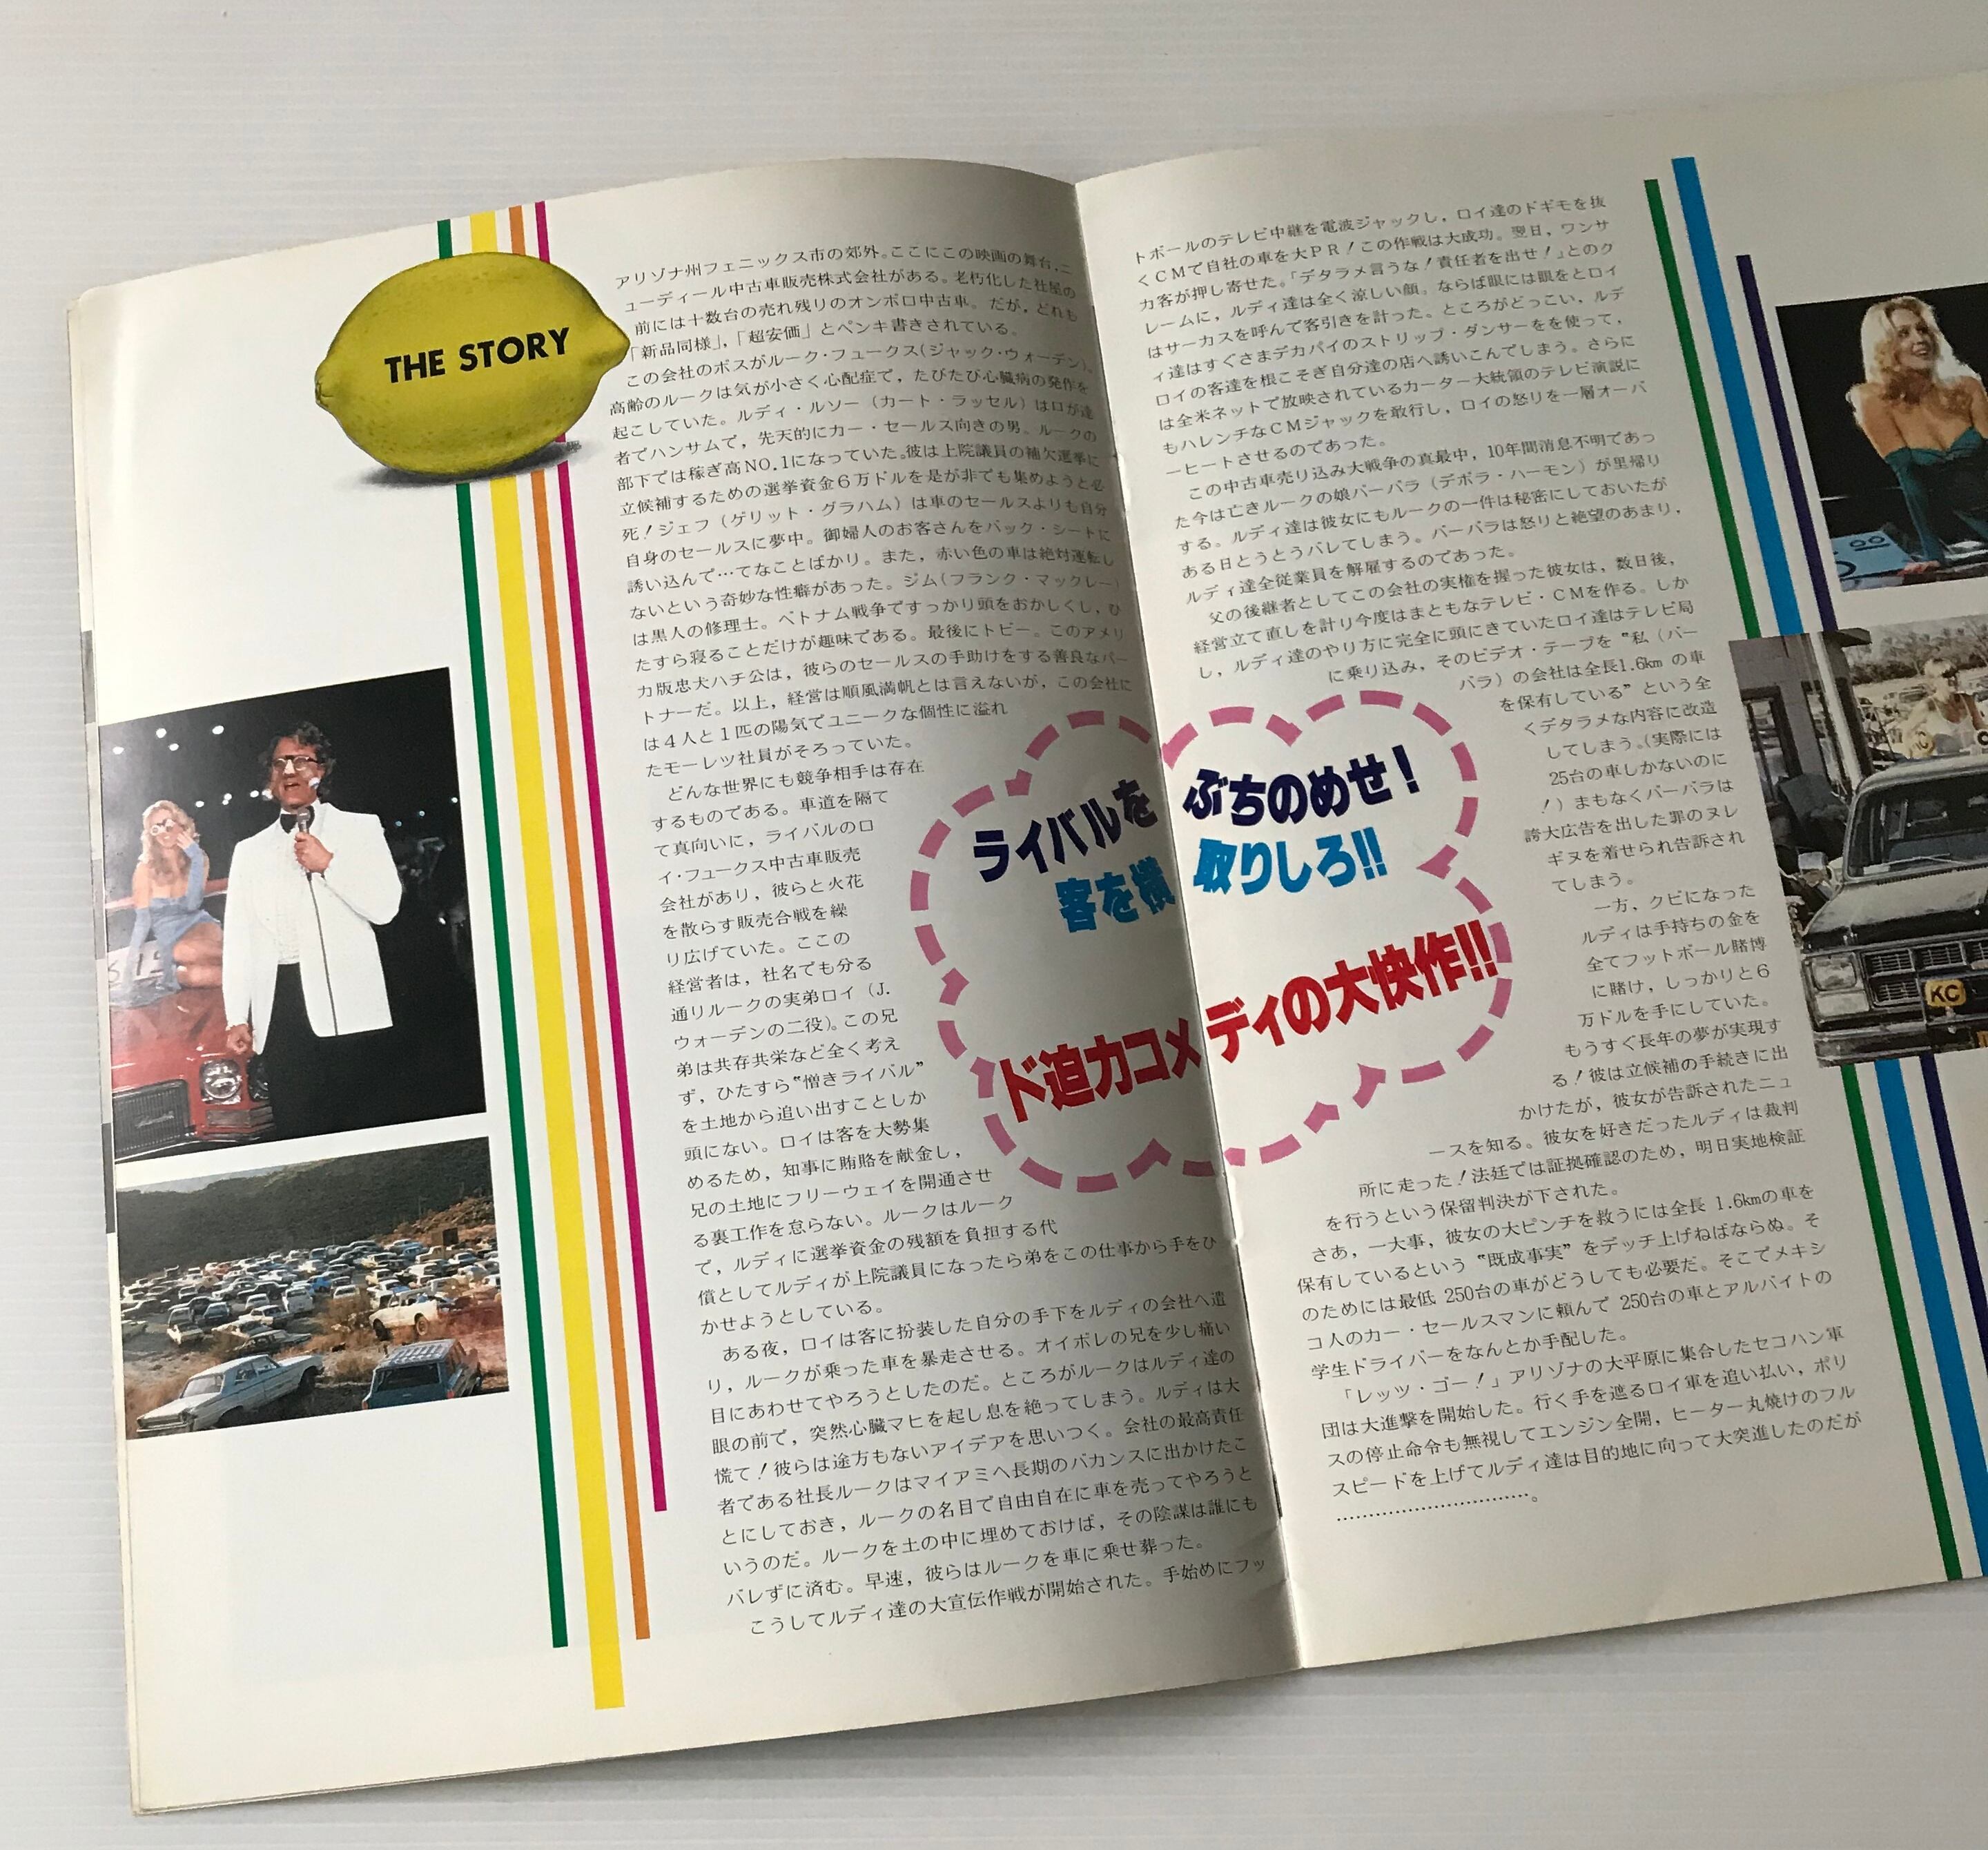 THE STORY
アリゾナ州フェニックス市の郊外。ここにこの映画の舞台,ニ
ューディール中古車販売株式会社がある。老朽化した社屋の
前には十数台の売れ残りのオンボロ中古車。だが，どれも
「新品同様」，「超安価」とペンキ書きされている。
この会社のボスがルーク・フュークス(ジャック・ウォーデン)。
高齢のルークは気が小さく心配症で，たびたび心臓病の発作を
起こしていた。ルディ・ルソー（カート・ラッセル）は口が達
者でハンサムで，先天的にカー・セールス向きの男。ルークの
部下では稼ぎ高NO.1になっていた。彼は上院議員の補欠選挙に
立候補するための選挙資金6万ドルを是が非でも集めようと必
死！ジェフ（ゲリット・グラハム）は車のセールスよりも自分
自身のセールスに夢中。御婦人のお客さんをバック・シートに
誘い込んで…てなことばかり。また，赤い色の車は絶対運転し
ないという奇妙な性癖があった。ジム(フランク・マックレー)
は黒人の修理士。ベトナム戦争ですっかり頭をおかしくし，ひ
たすら寝ることだけが趣味である。最後にトビー。このアメリ
カ版忠犬ハチ公は，彼らのセールスの手助けをする善良なパー
トナーだ。以上，経営は順風満帆とは言えないが，この会社に
は4人と1匹の陽気でユニークな個性に溢れ
たモーレツ社員がそろっていた。
どんな世界にも競争相手は存在
するものである。車道を隔て
て真向いに，ライバルのロ
イ・フュークス中古車販売
会社があり，彼らと火花
を散らす販売合戦を繰
り広げていた。ここの
経営者は，社名でも分る
通りルークの実弟ロイ（J.
ウォーデンの二役）。この兄
弟は共存共栄など全く考え
ず，ひたすら“憎きライバル”
を土地から追い出すことしか
頭にない。ロイは客を大勢集
めるため，知事に賄賂を献金し，
兄の土地にフリーウェイを開通させ
る裏工作を怠らない。ルークはルーク
で，ルディに選挙資金の残額を負担する代
償としてルディが上院議員になったら弟をこの仕事から手をひ
かせようとしている。
ある夜，ロイは客に扮装した自分の手下をルディの会社へ遣
り，ルークが乗った車を暴走させる。オイボレの兄を少し痛い
目にあわせてやろうとしたのだ。ところがルークはルディ達の
眼の前で，突然心臓マヒを起し息を絶ってしまう。ルディは大
慌て！彼らは途方もないアイデアを思いつく。会社の最高責任
者である社長ルークはマイアミへ長期のバカンスに出かけたこ
とにしておき，ルークの名目で自由自在に車を売ってやろうと
いうのだ。ルークを土の中に埋めておけば，その陰謀は誰にも
バレずに済む。早速，彼らはルークを車に乗せ葬った。
こうしてルディ達の大宣伝作戦が開始された。手始めにフッ
ライバルをぶちのめせ！
客を横取りしろ!!
ド迫力コメディの大快作!!
トボールのテレビ中継を電波ジャックし，ロイ達のドギモを抜
くCMで自社の車を大PR！この作戦は大成功。翌日，ワンサ
カ客が押し寄せた。「デタラメ言うな！責任者を出せ！」とのク
レームに，ルディ達は全く涼しい顔。ならば眼には眼をとロイ
はサーカスを呼んで客引きを計った。ところがどっこい，ルデ
ィ達はすぐさまデカパイのストリップ・ダンサーをを使って，
ロイの客達を根こそぎ自分達の店へ誘いこんでしまう。さらに
は全米ネットで放映されているカーター大統領のテレビ演説に
もハレンチなCMジャックを敢行し，ロイの怒りを一層オーバ
ーヒートさせるのであった。
この中古車売り込み大戦争の真最中，10年間消息不明であっ
た今は亡きルークの娘バーバラ（デボラ・ハーモン）が里帰り
する。ルディ達は彼女にもルークの一件は秘密にしておいたが
ある日とうとうバレてしまう。バーバラは怒りと絶望のあまり，
ルディ達全従業員を解雇するのであった。
父の後継者としてこの会社の実権を握った彼女は，数日後，
経営立て直しを計り今度はまともなテレビ・CMを作る。しか
し，ルディ達のやり方に完全に頭にきていたロイ達はテレビ局
に乗り込み，そのビデオ・テープを“私（バー
バラ）の会社は全長1.6kmの車
を保有している”という全
くデタラメな内容に改造
してしまう。(実際には
25台の車しかないのに
！）まもなくバーバラは
誇大広告を出した罪のヌレ
ギヌを着せられ告訴され
てしまう。
一方，クビになった
ルディは手持ちの金を
全てフットボール賭博
に賭け，しっかりと6
万ドルを手にしていた。
もうすぐ長年の夢が実現す
る！彼は立候補の手続きに出
かけたが，彼女が告訴されたニュ
ースを知る。彼女を好きだったルディは裁判
所に走った！法廷では証拠確認のため，明日実地検証
を行うという保留判決が下された。
さあ，一大事，彼女の大ピンチを救うには全長 1.6kmの車を
保有しているという“既成事実”をデッチ上げねばならぬ。そ
のためには最低 250台の車がどうしても必要だ。そこでメキシ
コ人のカー・セールスマンに頼んで 250台の車とアルバイトの
学生ドライバーをなんとか手配した。
「レッツ・ゴー！」アリゾナの大平原に集合したセコハン軍
団は大進撃を開始した。行く手を遮るロイ軍を追い払い，ポリ
スの停止命令も無視してエンジン全開，ヒーター丸焼けのフル
スピードを上げてルディ達は目的地に向って大突進したのだが
…………………………。
KC